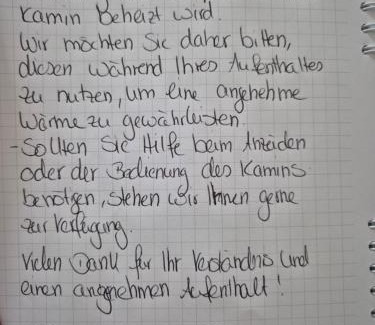 Kamin Beheizt wird.
Wir möchten Sie daher bitten,
diesen während Ihres Aufenthaltes
zu nutzen, um eine angenehme
Wärme zu gewährleisten.
- Sollten Sie Hilfe beim Anzünden
oder der Bedienung des Kamins
benötgen, stehen wir Ihnen gerne
zur Verfügung.
Vielen Dank für Ihr Verständnis und
einen angenehmen Aufenthalt!